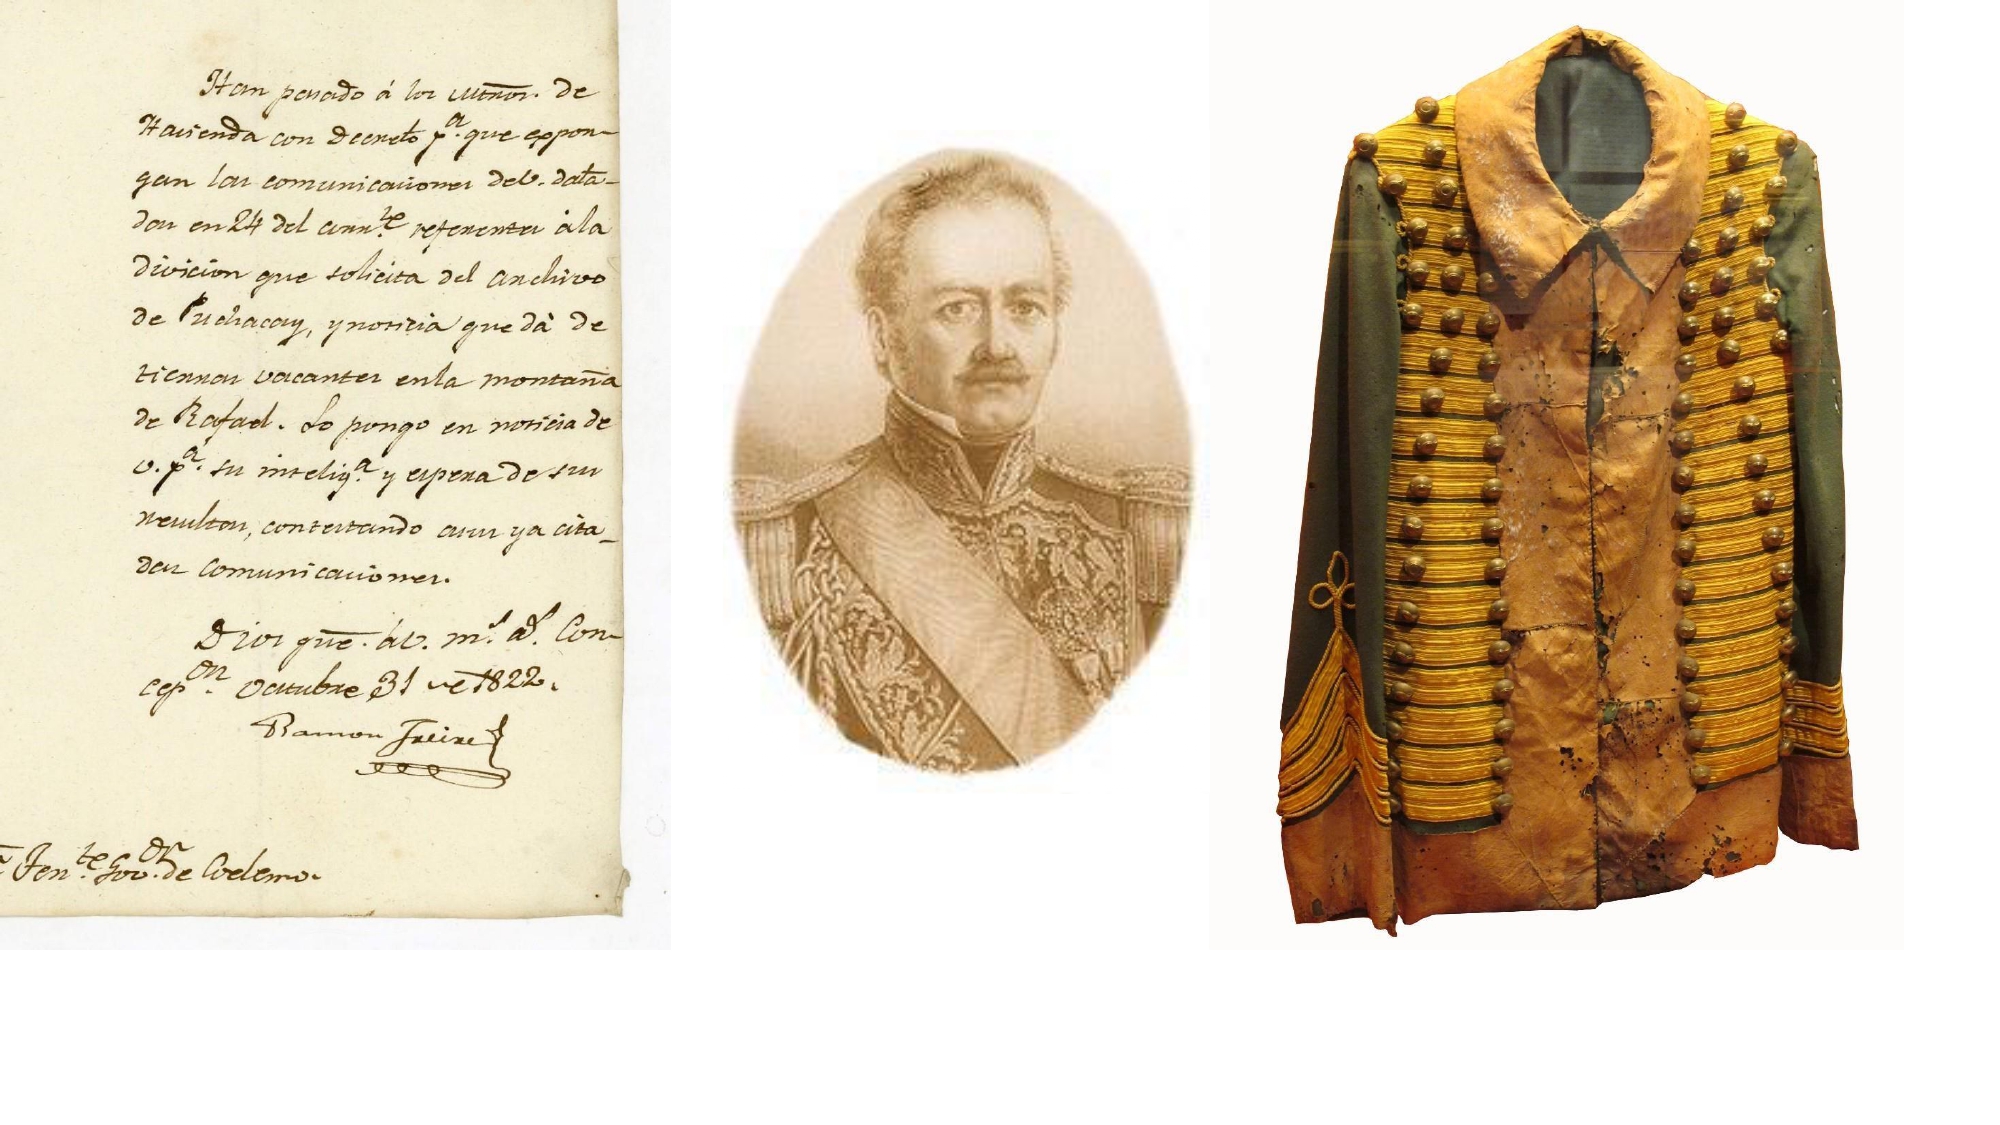 Han pasado á los Mtrōs. de
Hacienda con Decreto pª. que expon-
gan las comunicaciones de V. data-
das en 24 del corrte. referentes á la
division que solicita del Archivo
de Puchacay, y noticia que dá de
tierras vacantes en la montaña
de Rafael. Lo pongo en noticia de
V. pª. su inteligª. y espera de sus
resultas, contestando a sus ya cita-
das comunicaciones.
Dios gue. á V. ms. as. Con-
cepon. Octubre 31 de 1822.
Ramon Freire
Tente. Govor. de Coelemo.